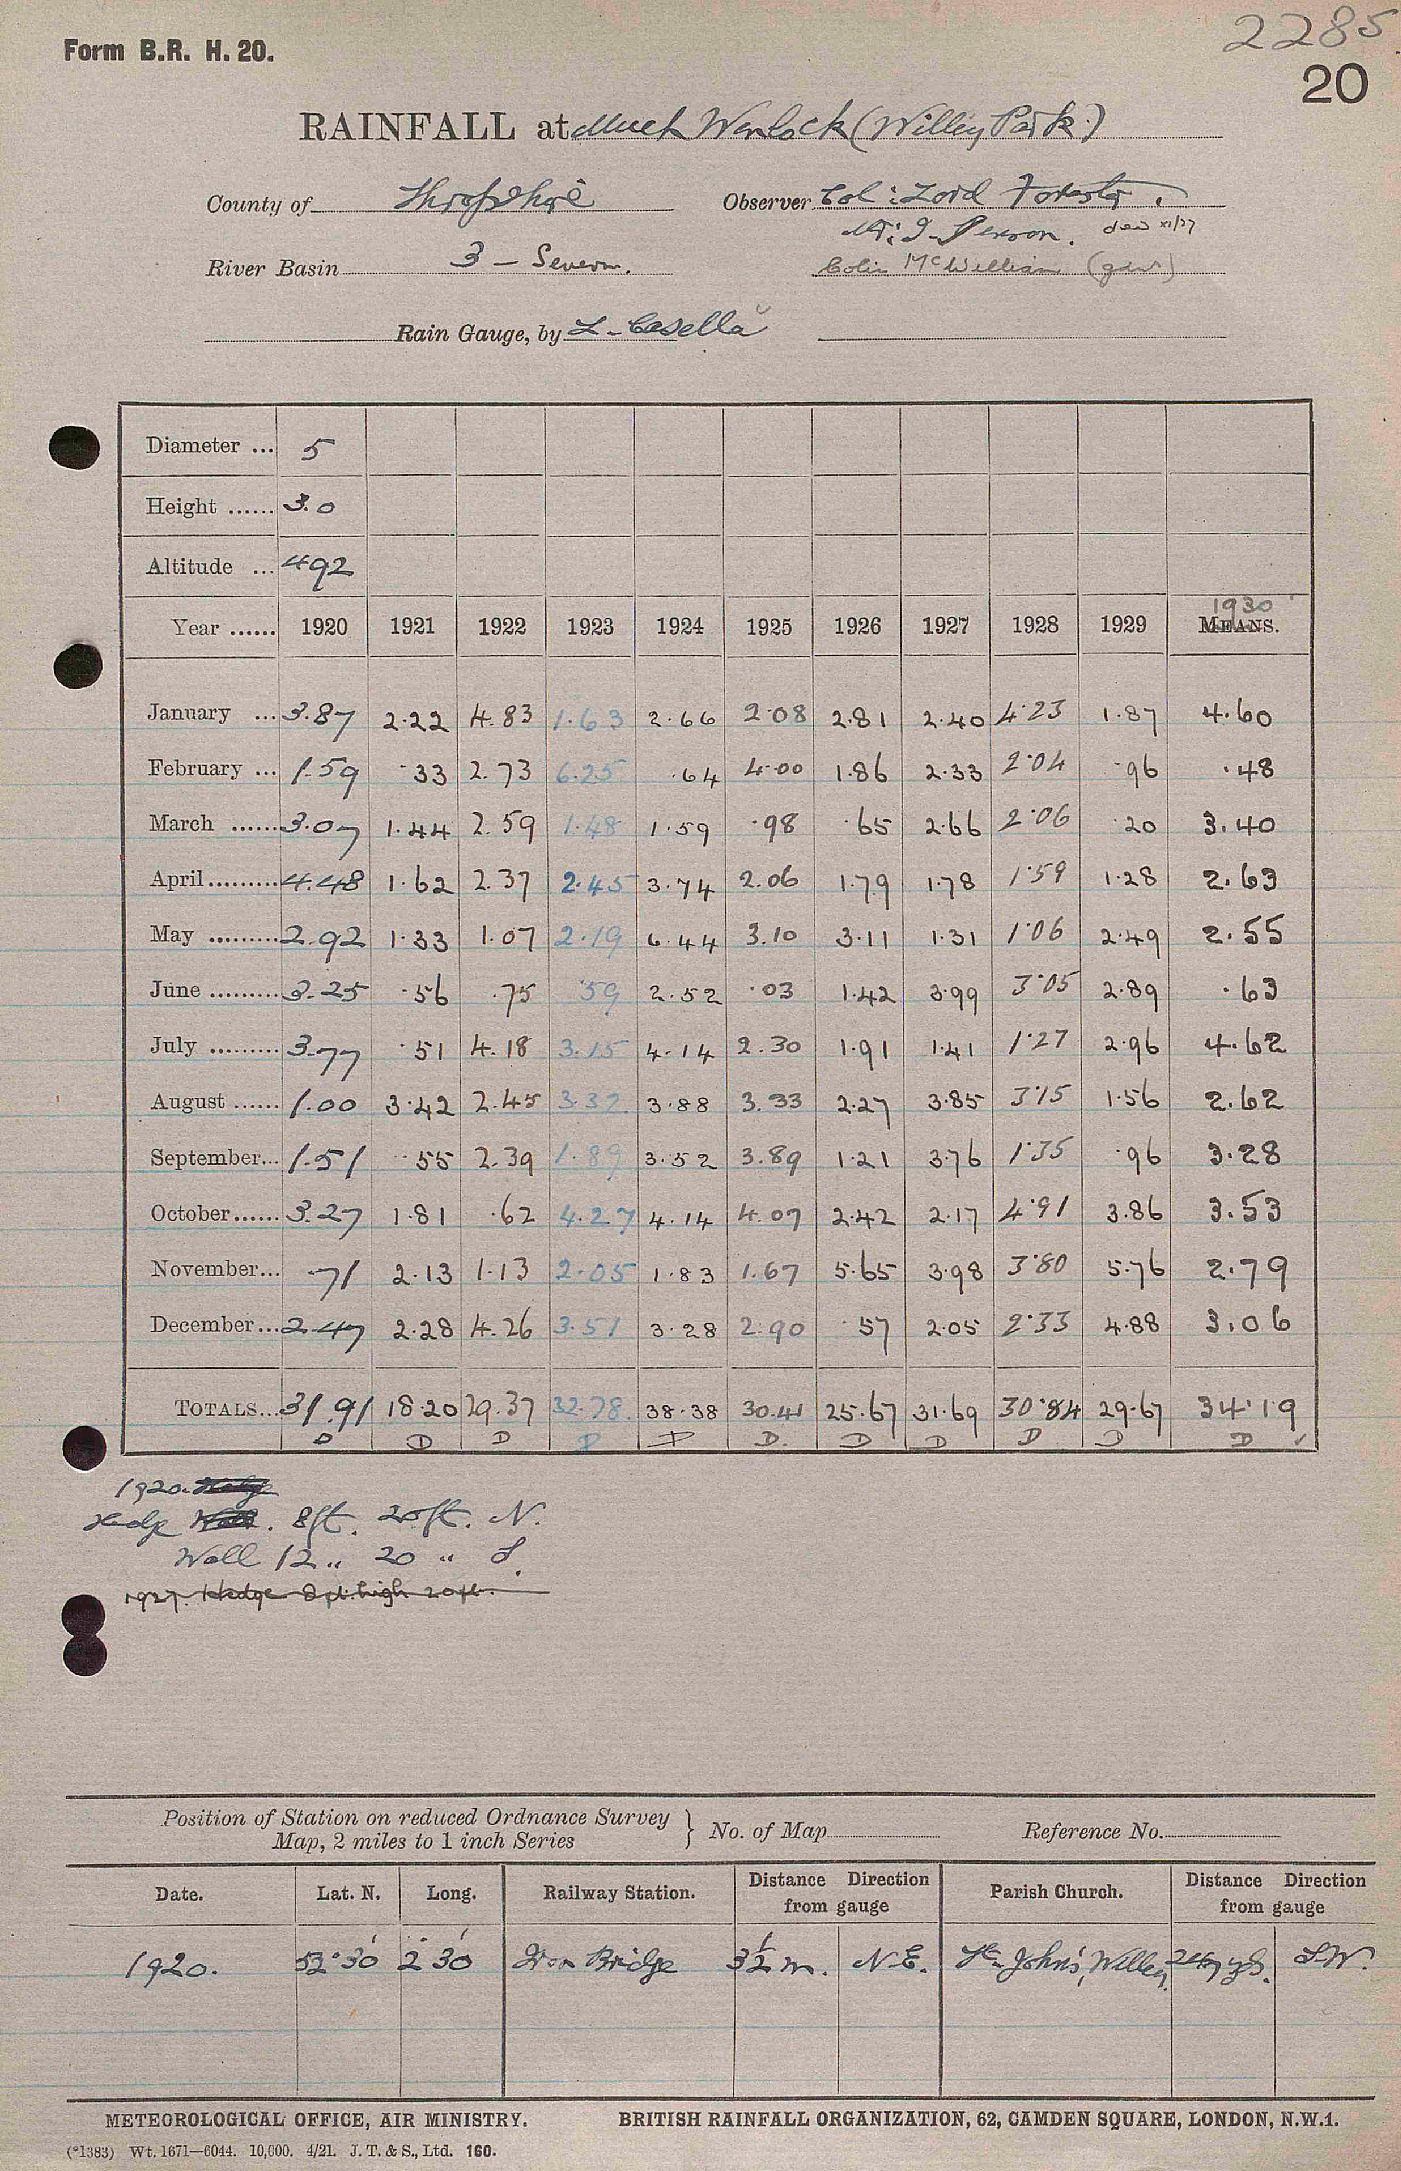 2285
Form B.R. H. 20.
20
RAINFALL at Much Wenlock (Willey Park)
County of Shropshire Observer Col: Lord Forester.
Mr: J. Pearson. dead XI/27
River Basin 3 - Severn. Colin McWilliam (gdnr)
Rain Gauge, by L. Casella
Diameter ... 5
Height ...... 3.0
Altitude ... 492
1930
Year ...... 1920 1921 1922 1923 1924 1925 1926 1927 1928 1929 MEANS.
January ... 3.87 2.22 4.83 1.63 2.66 2.08 2.81 2.40 4.23 1.87 4.60
February ... 1.59 .33 2.73 6.25 .64 4.00 1.86 2.33 2.04 .96 .48
March ...... 3.07 1.44 2.59 1.48 1.59 .98 .65 2.66 2.06 .20 3.40
April......... 4.48 1.62 2.37 2.45 3.74 2.06 1.79 1.78 1.59 1.28 2.63
May ......... 2.92 1.33 1.07 2.19 6.44 3.10 3.11 1.31 1.06 2.49 2.55
June ......... 3.25 .56 .75 .59 2.52 .03 1.42 3.99 3.05 2.89 .63
July ......... 3.77 .51 4.18 3.15 4.14 2.30 1.91 1.41 1.27 2.96 4.62
August ...... 1.00 3.42 2.45 3.32 3.88 3.33 2.27 3.85 3.15 1.56 2.62
September... 1.51 .55 2.39 1.89 3.52 3.89 1.21 3.76 1.35 .96 3.28
October...... 3.27 1.81 .62 4.27 4.14 4.07 2.42 2.17 4.91 3.86 3.53
November... .71 2.13 1.13 2.05 1.83 1.67 5.65 3.98 3.80 5.76 2.79
December... 2.47 2.28 4.26 3.51 3.28 2.90 .57 2.05 2.33 4.88 3.06
TOTALS... 31.91 18.20 29.37 32.78 38.38 30.41 25.67 31.69 30.84 29.67 34.19
D D D D D D D D D D D ✓
1920. Hedge
Hedge Wall. 8ft. 20ft. N.
Wall 12 " 20 " S.
1927. Hedge 8 ft. high 20 ft.
Position of Station on reduced Ordnance Survey
Map, 2 miles to 1 inch Series } No. of Map Reference No.
Date. Lat. N. Long. Railway Station. Distance Direction from gauge Parish Church. Distance Direction from gauge
1920. 52° 30' 2° 30' Iron Bridge 3½ m. N.E. St. John's, Willey yds. S.W.
METEOROLOGICAL OFFICE, AIR MINISTRY. BRITISH RAINFALL ORGANIZATION, 62, CAMDEN SQUARE, LONDON, N.W.1.
(*1383) Wt. 1671—6044. 10,000. 4/21. J. T. & S., Ltd. 160.